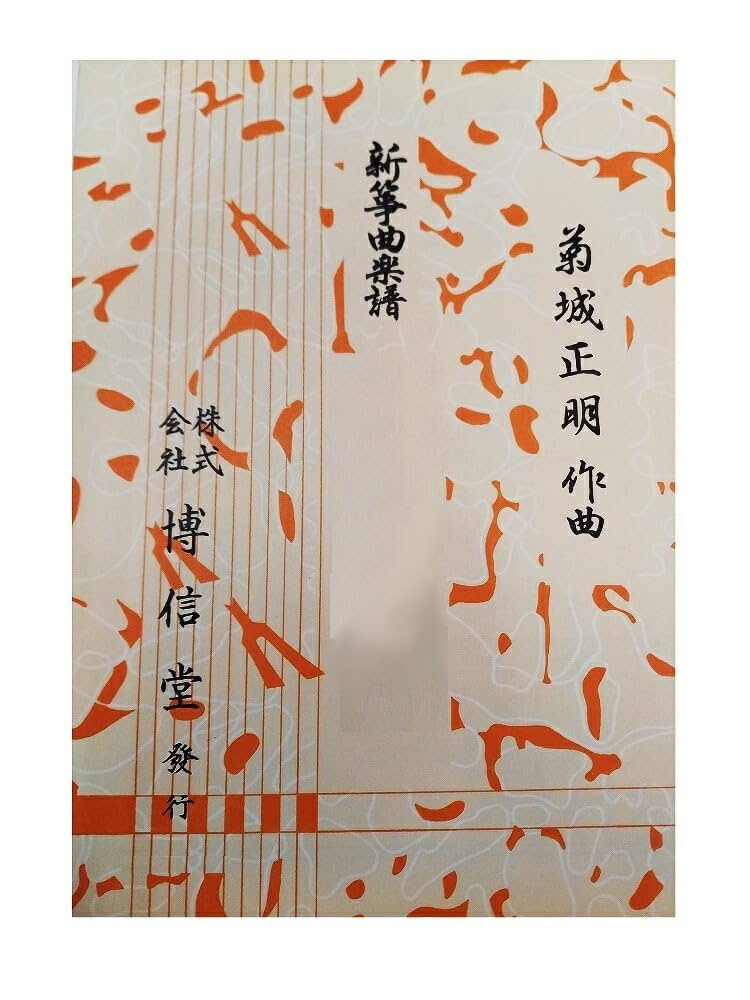 菊城正明 作曲
新箏曲楽譜
株式
会社
博信堂 發行